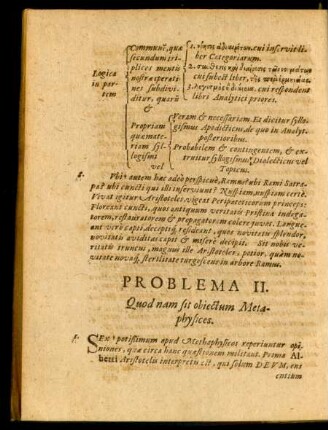 Logica
in par-
tem
Communē, quæ
secundum tri-
plices mentis
nostræ operati-
nes subdivi-
ditur, quarū
&
Propriam
quæ mate-
riam syl-
logismi
vel
cui inservit li-
ber Categoriarum.
cui subest liber,
cui respondent
libri Analytici priores.
Veram & necessariam. Ex dicitur syllo-
gismus Apodicticus, de quo in Analyt.
posterioribus.
Probabilem & contingentem, & ex-
truitur syllogismus Dialecticus vel
Topicus.
Vbi autem hæc adeò perspicuè, Ramus? ubi Rami Satra-
pæ? ubi cuncti qui illi inserviunt? Nusquam, nusquam certè.
Vivat igitur Aristoteles, vigeat Peripateticorum princeps:
Floreant cuncti, quos antiquum veritatis pristina indaga-
torem, restauratorem & propagatorem colere juvet. Langue-
ant verò capti, decepti,
novitatis aviditas cæpit & miserè decipit. Sit nobis ve-
ritatis truncus, magnus ille Aristoteles, potior, quàm no-
vitate novus, sterilitate turgescens in arbore Ramus.
PROBLEMA II.
Quod nam sit obiectum Meta-
physices.
SEx potissimum apud Methaphysicos reperiuntur opi-
niones, quæ circa hanc quæstionem militant. Prima Al-
berti Aristotelis interpretis est, qui solum DEVM, ens
entium